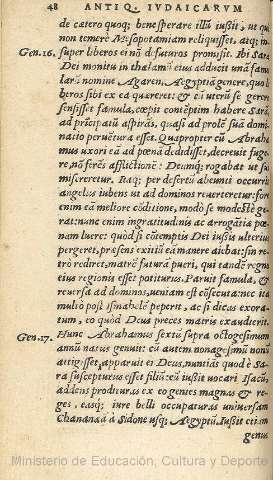 48 ANTIQ. IVDAICARVM
de cætero quoq; bene sperare illũ iussit, ut qui
non temere Mesopotamiam reliquisset, atq; in-
Gen.16. super liberos ei nõ defuturos promisit. Ibi Sara
Dei monitu in thalamũ eius adducit unã famu
larũ nomine Agaren, Aegyptiã genere, quo li-
beros sibi ex ea quæreret: & cũ uterũ se gerere
sensisset famula, cœpit contẽptim habere Sarã,
ad prĩcipatũ aspirãs, quasi ad prolẽ suã domi-
natio peruẽtura esset. Quapropter cũ Abraha-
mus uxori eã ad pœnã dedidisset, decreuit fuge-
re, nõ ferẽs afflictionẽ: Deumq; rogabat ut sui
misereretur. Itaq; per desertũ abeunti occurrit
angelus iubens ut ad dominos reuerteretur: fore
enim eã meliore cõditione, modo se modestè ge-
rat: nunc enim ingratitudinis ac arrogãtiæ pœ-
nam luere: quod si cõtemptis Dei iussis ulterius
pergeret, præsens exitiũ eã manere aiebat: sin re-
trò rediret, matrẽ futurã pueri, qui tandẽ regno
eius regionis esset potiturus. Paruit famula, &
reuersa ad dominos, ueniam est cõsecuta: nec ita
multò pòst Ismahelẽ peperit, ac si dicas exora-
tum, eo quòd Deus preces matris exaudierit.
Gen.17. Hunc Abrahamus sextũ supra octogesimum
annũ natus genuit: cũ autem nonagesimũ nonũ
attigisset, apparuit ei Deus, nuntiãs quòd è Sa-
ra suscepturus esset filiũ: eũ iussit uocari Isacũ,
addens prodituras ex eo gentes magnas & re-
ges, easq; iure belli occupaturas uniuersam
Chananæã à Sidone usq; Aegyptũ. Iussit etiam
genus
Ministerio de Educación, Cultura y Deporte